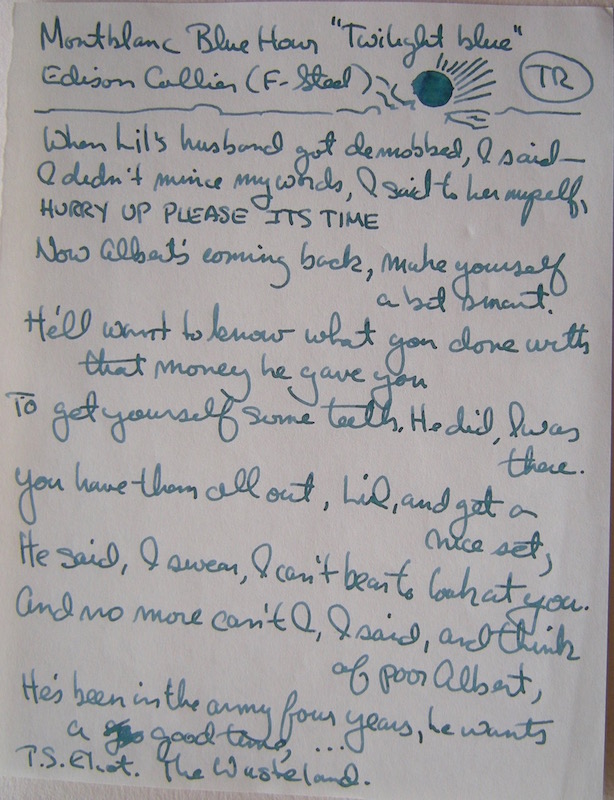 Montblanc Blue Hour "Twilight blue"
Edison Collier (F-Steel)
TR
When Lil's husband got demobbed, I said—
I didn't mince my words, I said to her myself,
HURRY UP PLEASE ITS TIME
Now Albert's coming back, make yourself
a bit smart.
He'll want to know what you done with
that money he gave you
To get yourself some teeth. He did, I was
there.
You have them all out, Lil, and get a
nice set,
He said, I swear, I can't bear to look at you.
And no more can't I, I said, and think
of poor Albert,
He's been in the army four years, he wants
a good time, ...
T.S. Eliot. The Wasteland.